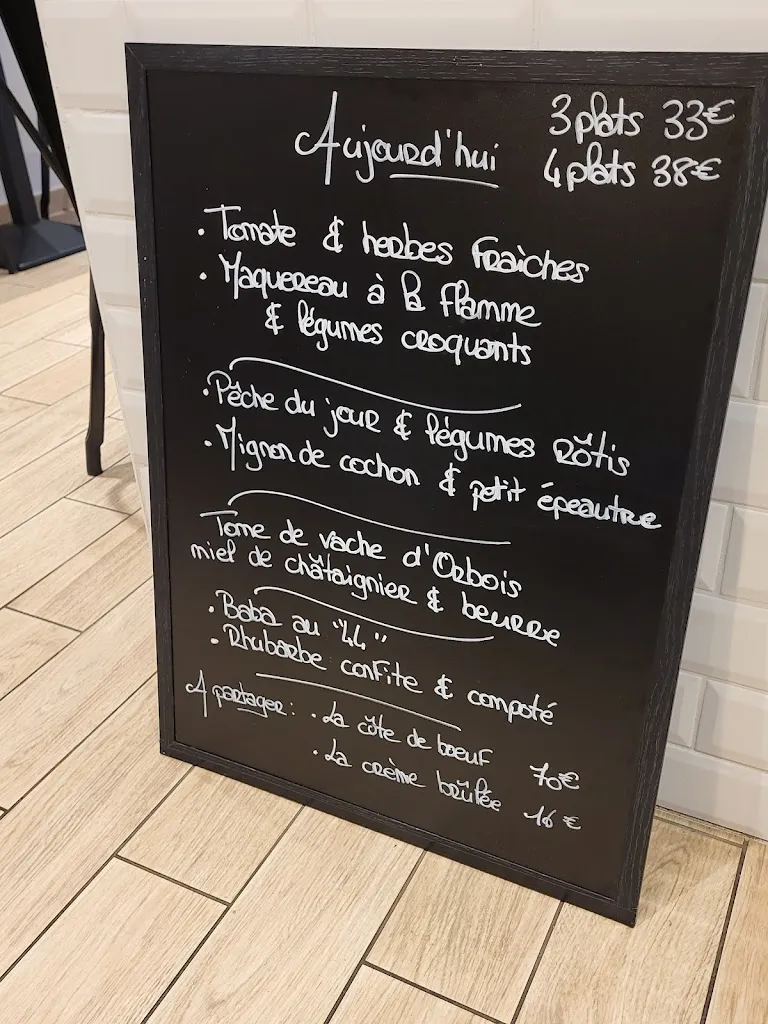 Aujourd'hui
3 plats 33€
4 plats 38€
• Tomate & herbes fraîches
• Maquereau à la flamme
& légumes croquants
• Pêche du jour & légumes rôtis
• Mignon de cochon & petit épeautre
Tome de vache d'Orbois
miel de châtaignier & beurre
• Baba au "44"
• Rhubarbe confite & compoté
A partager : • La côte de boeuf 70€
• La crème brûlée 16€